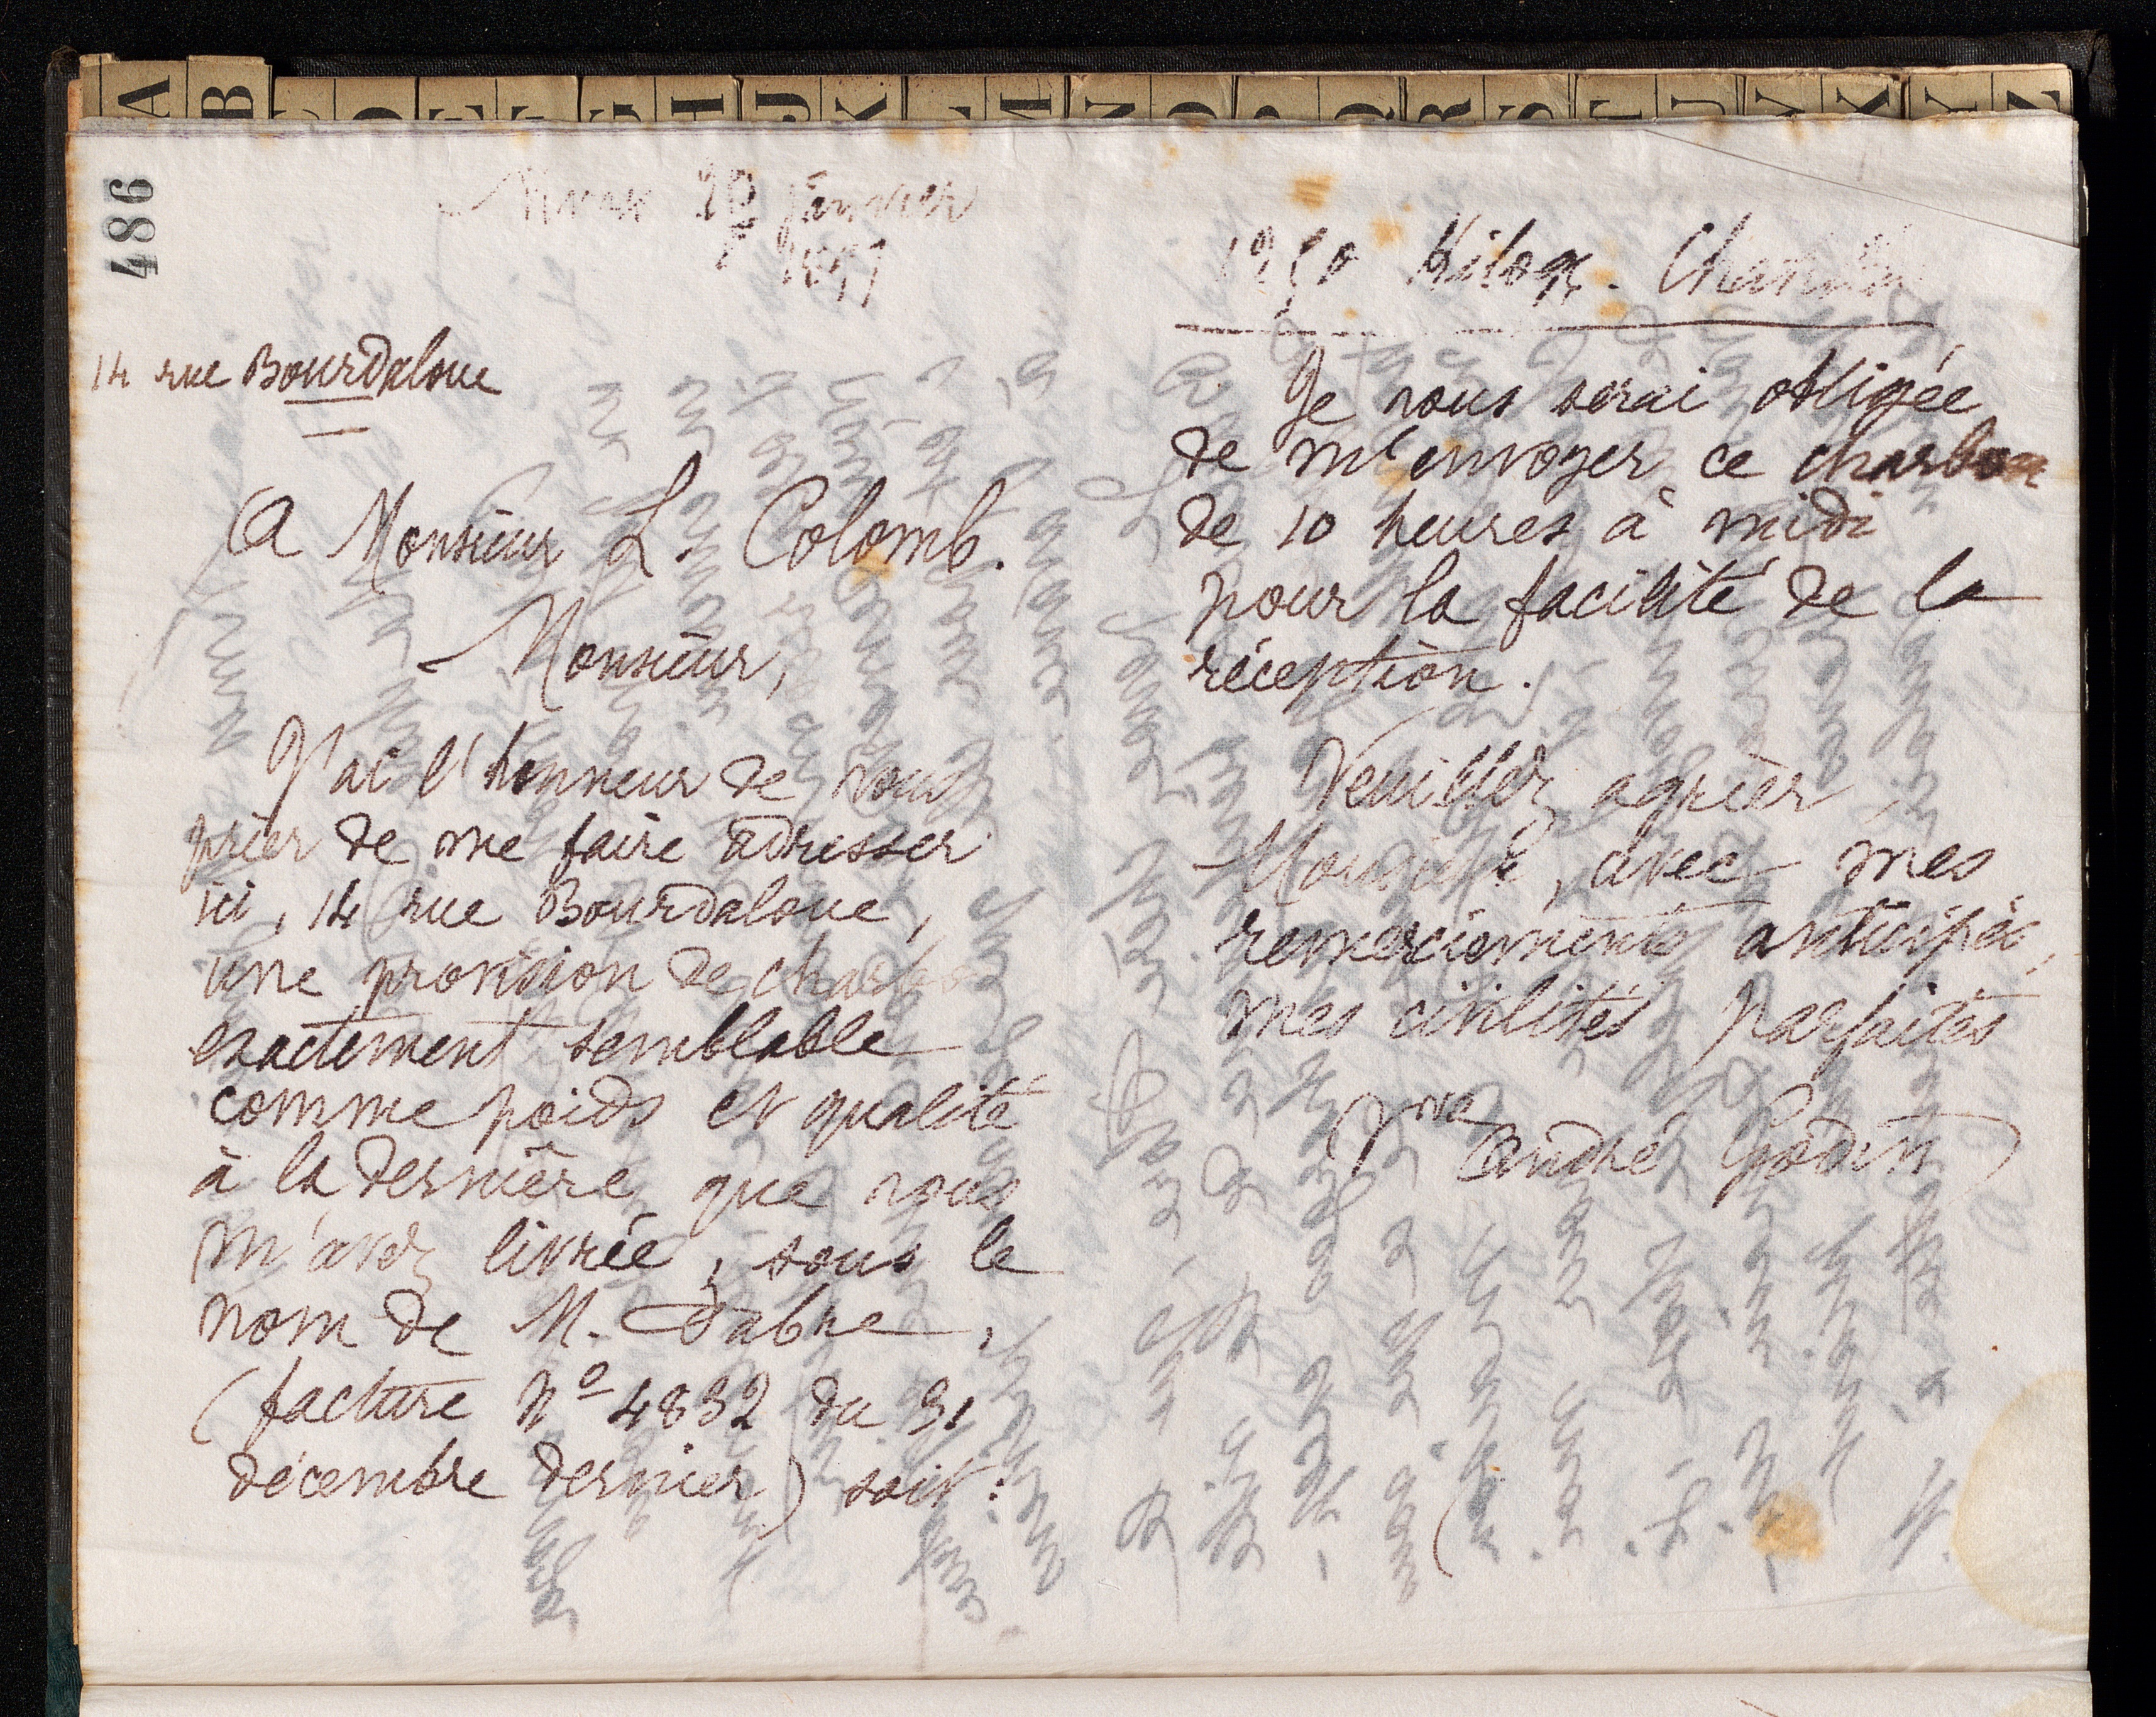 A B E H J K N Q R S T
486
janvier
14 rue Bourdaloue
A Monsieur L. Colomb.
Monsieur,
J'ai l'honneur de vous
prier de me faire adresser
ici, 14 rue Bourdaloue,
une provision de charbon
exactement semblable
comme poids et qualité
à la dernière que vous
m'avez livrée, sous le
nom de M. Fabre,
(facture No 4832 du 31
décembre dernier) soit:
Kilog.
Je vous serai obligée
de m'envoyer ce charbon
de 10 heures à midi
pour la facilité de la
réception.
Veuillez agréer,
Monsieur, avec mes
remerciements anticipés,
mes civilités parfaites
(Vve André Godin)